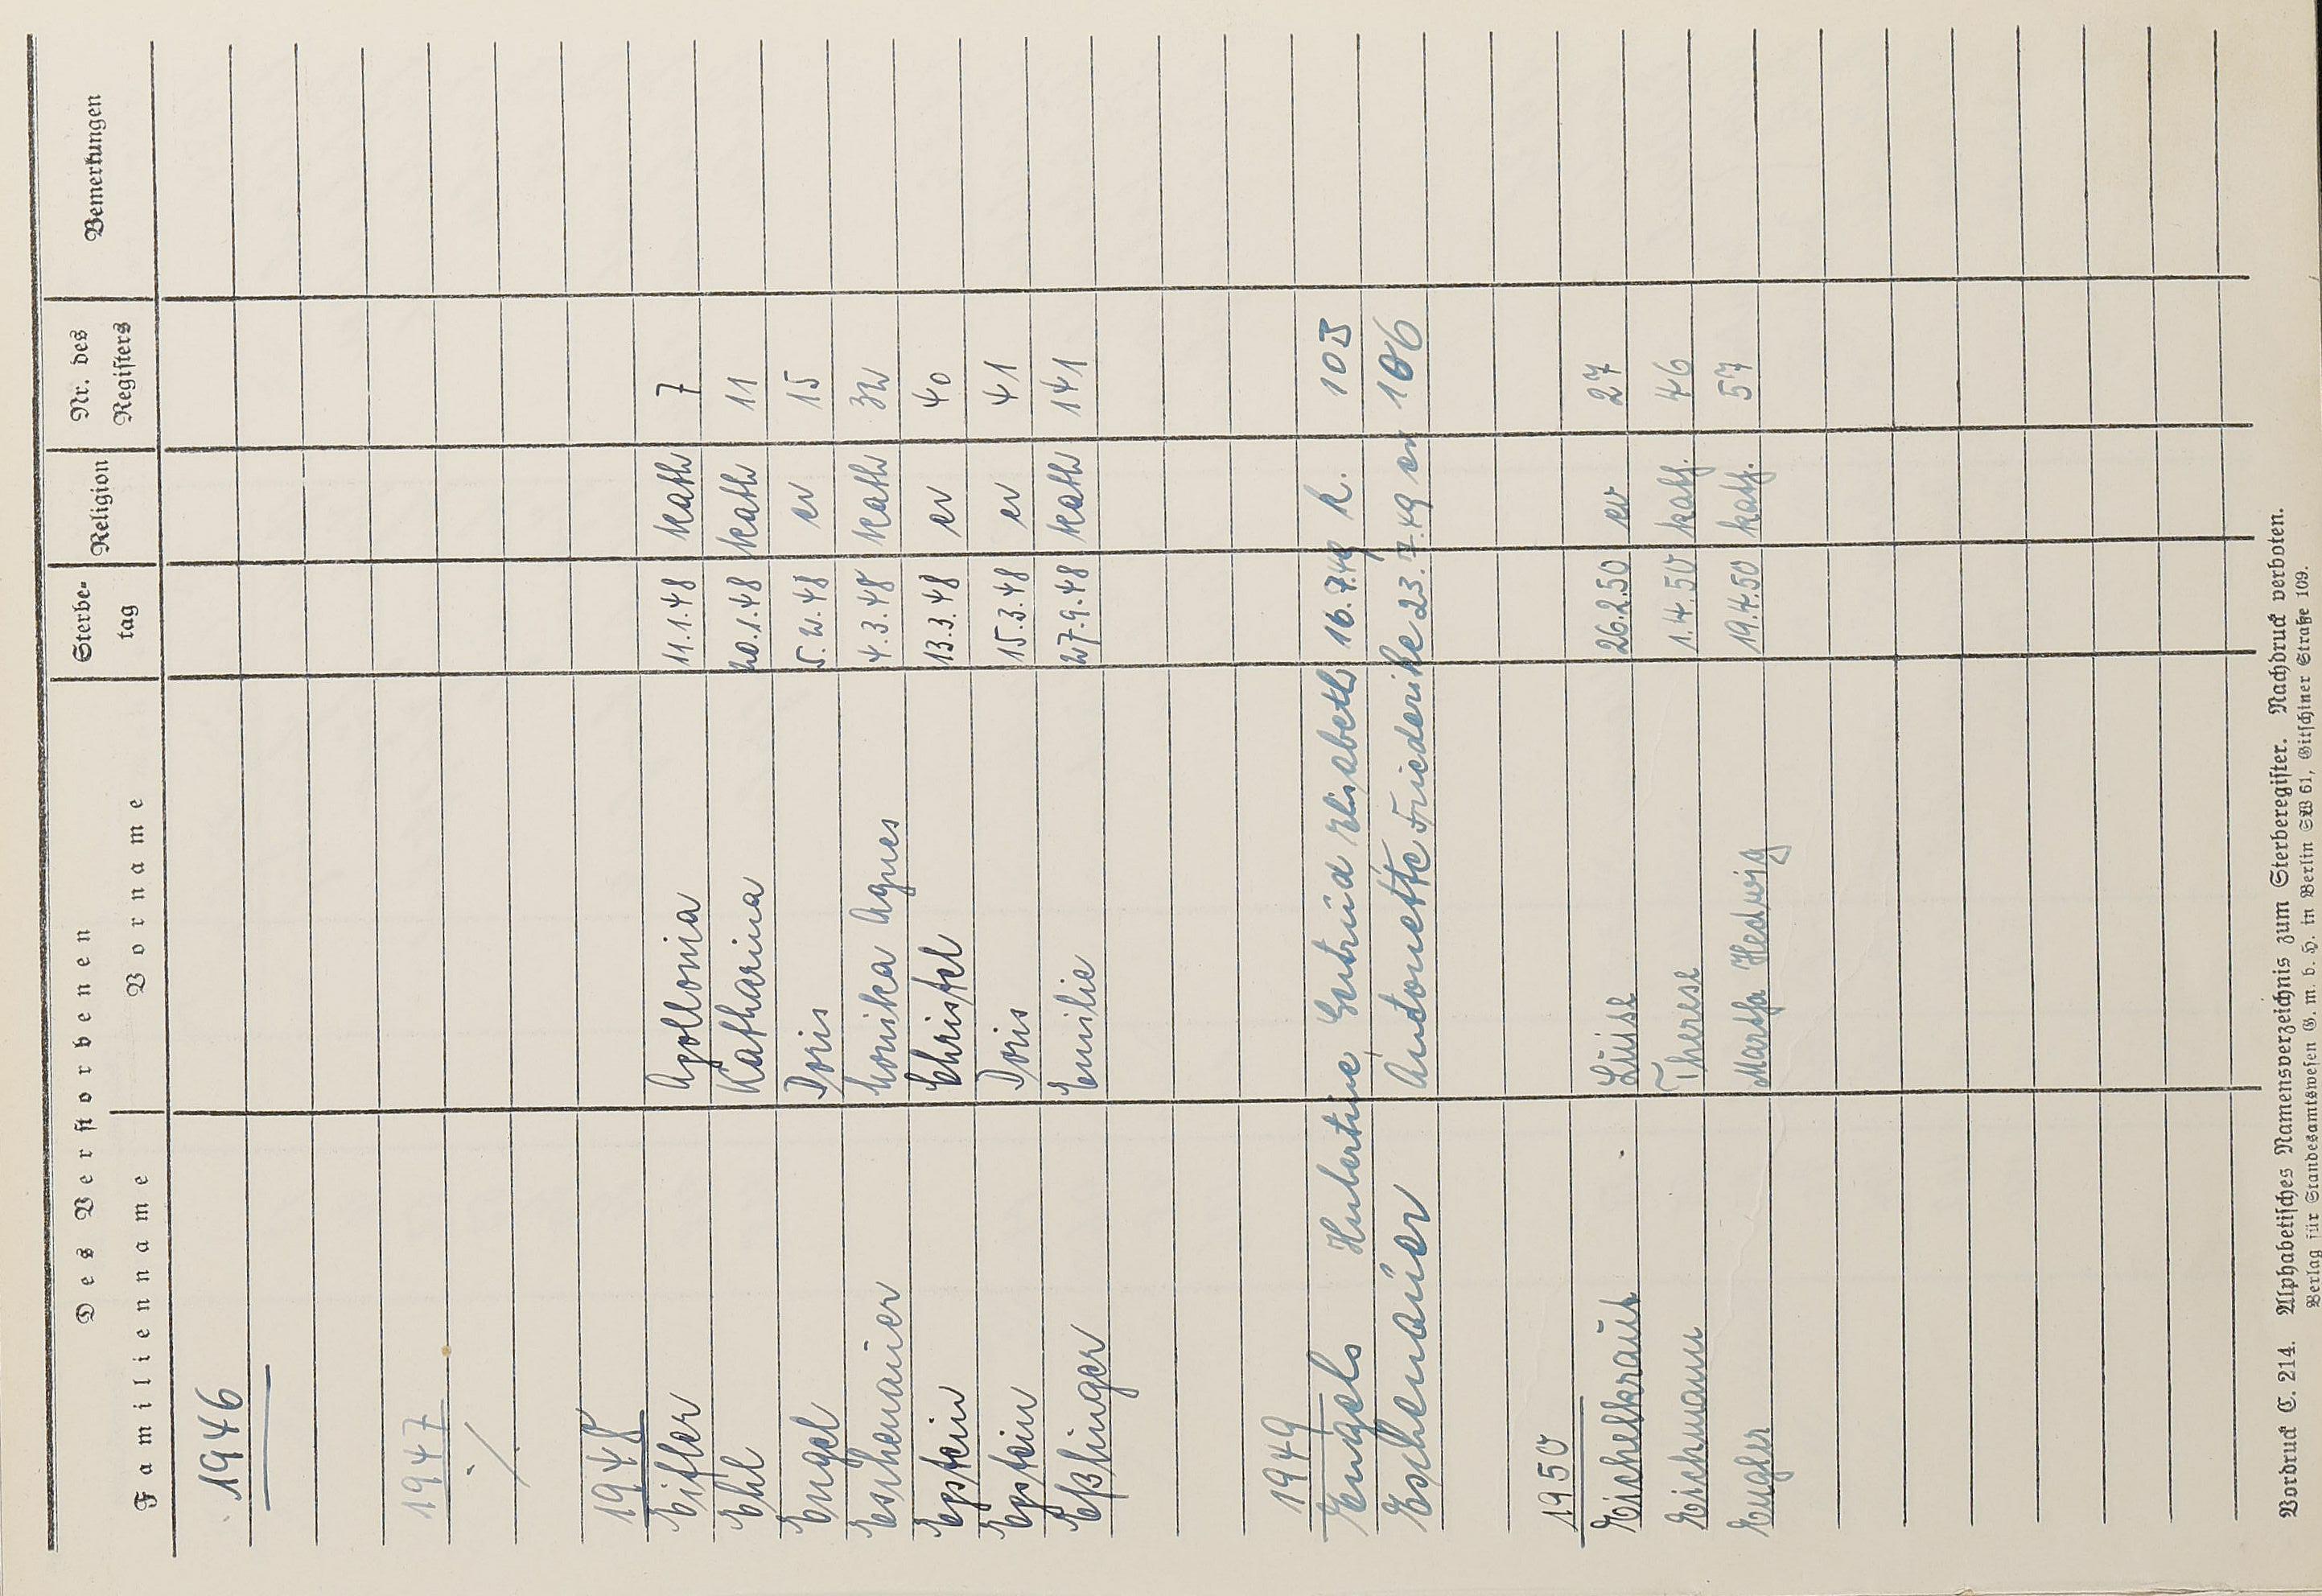 Des Verstorbenen
Familienname Vorname Sterbe-tag Religion Nr. des Registers Bemerkungen
1946
1947
./.
1948
Eifler Apollonia 11.1.48 kath 7
Ehl Katharina 20.1.48 kath 11
Engel Doris 5.2.48 ev 15
Eschenauer Monika Agnes 4.3.48 kath 32
Epstein Christel 13.3.48 ev 40
Epstein Doris 15.3.48 ev 41
Eßlinger Emilie 27.9.48 kath 141
1949
Engels Hubertine Gertrud Elisabeth 16.7.49 k. 103
Eschenauer Antonette Friederike 23.7.49 ev 106
1950
Eichelkraut Luise 26.2.50 ev 27
Eichmann Therese 1.4.50 kath. 46
Engler Martha Hedwig 19.4.50 kath. 57
Vordruck C. 214. Alphabetisches Namensverzeichnis zum Sterberegister. Nachdruck verboten.
Verlag für Standesamtswesen G. m. b. H. in Berlin SW 61, Gitschiner Straße 109.